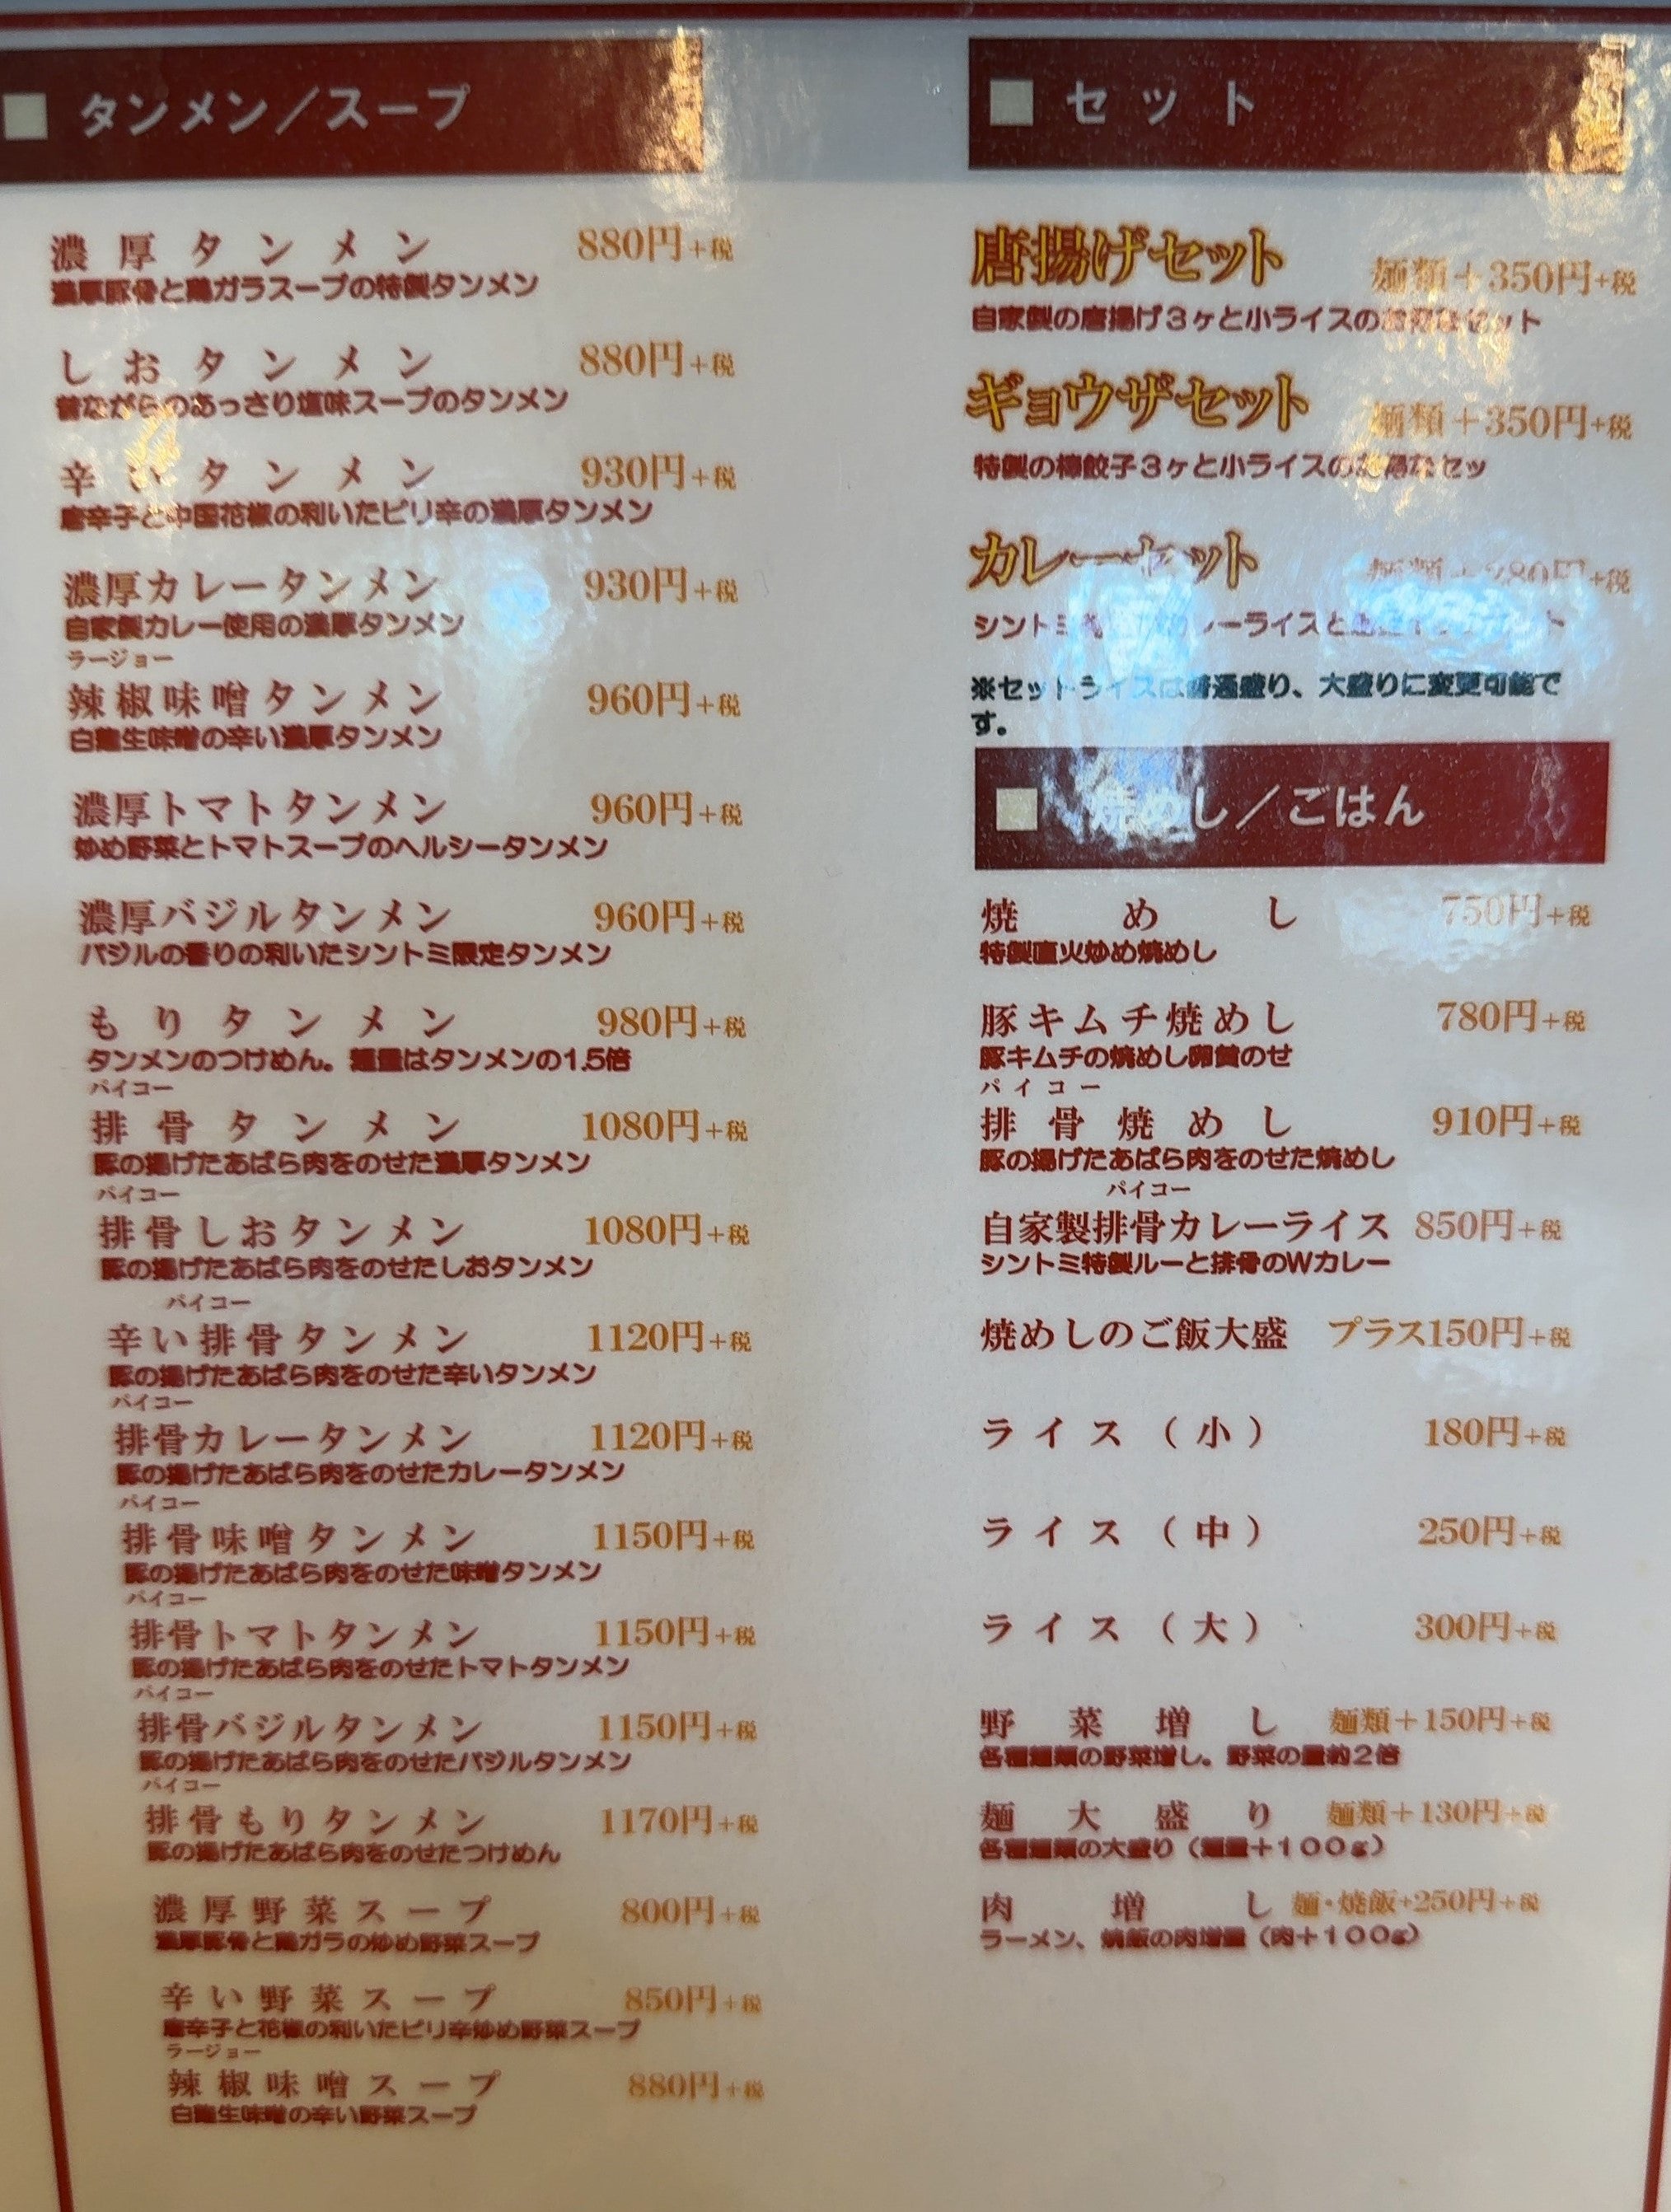 タンメン／スープ
濃厚タンメン 880円+税
濃厚豚骨と鶏ガラスープの特製タンメン
しおタンメン 880円+税
昔ながらのあっさり塩味スープのタンメン
辛いタンメン 930円+税
唐辛子と中国花椒の利いたピリ辛の濃厚タンメン
濃厚カレータンメン 930円+税
自家製カレー使用の濃厚タンメン
ラージョー
辣椒味噌タンメン 960円+税
白麹生味噌の辛い濃厚タンメン
濃厚トマトタンメン 960円+税
炒め野菜とトマトスープのヘルシータンメン
濃厚バジルタンメン 960円+税
バジルの香りの利いたシントミ限定タンメン
もりタンメン 980円+税
タンメンのつけめん。麺量はタンメンの1.5倍
パイコー
排骨タンメン 1080円+税
豚の揚げたあばら肉をのせた濃厚タンメン
パイコー
排骨しおタンメン 1080円+税
豚の揚げたあばら肉をのせたしおタンメン
パイコー
辛い排骨タンメン 1120円+税
豚の揚げたあばら肉をのせた辛いタンメン
パイコー
排骨カレータンメン 1120円+税
豚の揚げたあばら肉をのせたカレータンメン
パイコー
排骨味噌タンメン 1150円+税
豚の揚げたあばら肉をのせた味噌タンメン
パイコー
排骨トマトタンメン 1150円+税
豚の揚げたあばら肉をのせたトマトタンメン
パイコー
排骨バジルタンメン 1150円+税
豚の揚げたあばら肉をのせたバジルタンメン
パイコー
排骨もりタンメン 1170円+税
豚の揚げたあばら肉をのせたつけめん
濃厚野菜スープ 800円+税
濃厚豚骨と鶏ガラの炒め野菜スープ
辛い野菜スープ 850円+税
唐辛子と花椒の利いたピリ辛炒め野菜スープ
ラージョー
辣椒味噌スープ 880円+税
白麹生味噌の辛い野菜スープ
セット
唐揚げセット 麺類+350円+税
自家製の唐揚げ３ヶと小ライスのお得なセット
ギョウザセット 麺類+350円+税
特製の棒餃子３ヶと小ライスのお得なセッ
カレーセット 麺類+380円+税
シントミ カレーライスと
※セットライスは普通盛り、大盛りに変更可能で
す。
焼めし／ごはん
焼めし 750円+税
特製直火炒め焼めし
豚キムチ焼めし 780円+税
豚キムチの焼めし卵黄のせ
パイコー
排骨焼めし 910円+税
豚の揚げたあばら肉をのせた焼めし
パイコー
自家製排骨カレーライス 850円+税
シントミ特製ルーと排骨のWカレー
焼めしのご飯大盛 プラス150円+税
ライス（小） 180円+税
ライス（中） 250円+税
ライス（大） 300円+税
野菜増し 麺類+150円+税
各種麺類の野菜増し。野菜の量約２倍
麺大盛り 麺類+130円+税
各種麺類の大盛り（麺量＋１００ｇ）
肉増し 麺・焼飯+250円+税
ラーメン、焼飯の肉増量（肉＋１００g）